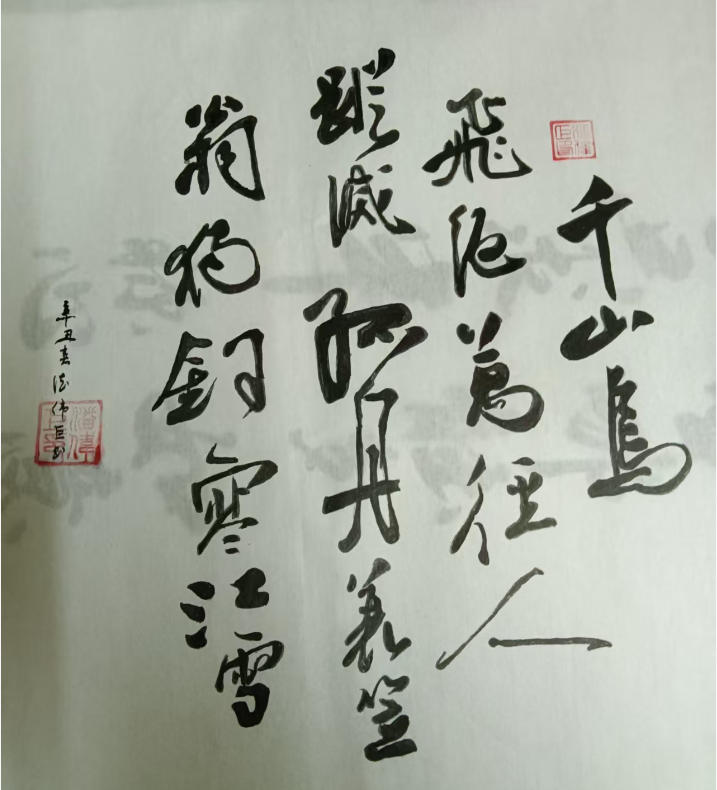 千山鳥
飛絕萬徑人
蹤滅孤舟蓑笠
翁獨釣寒江雪
辛丑春